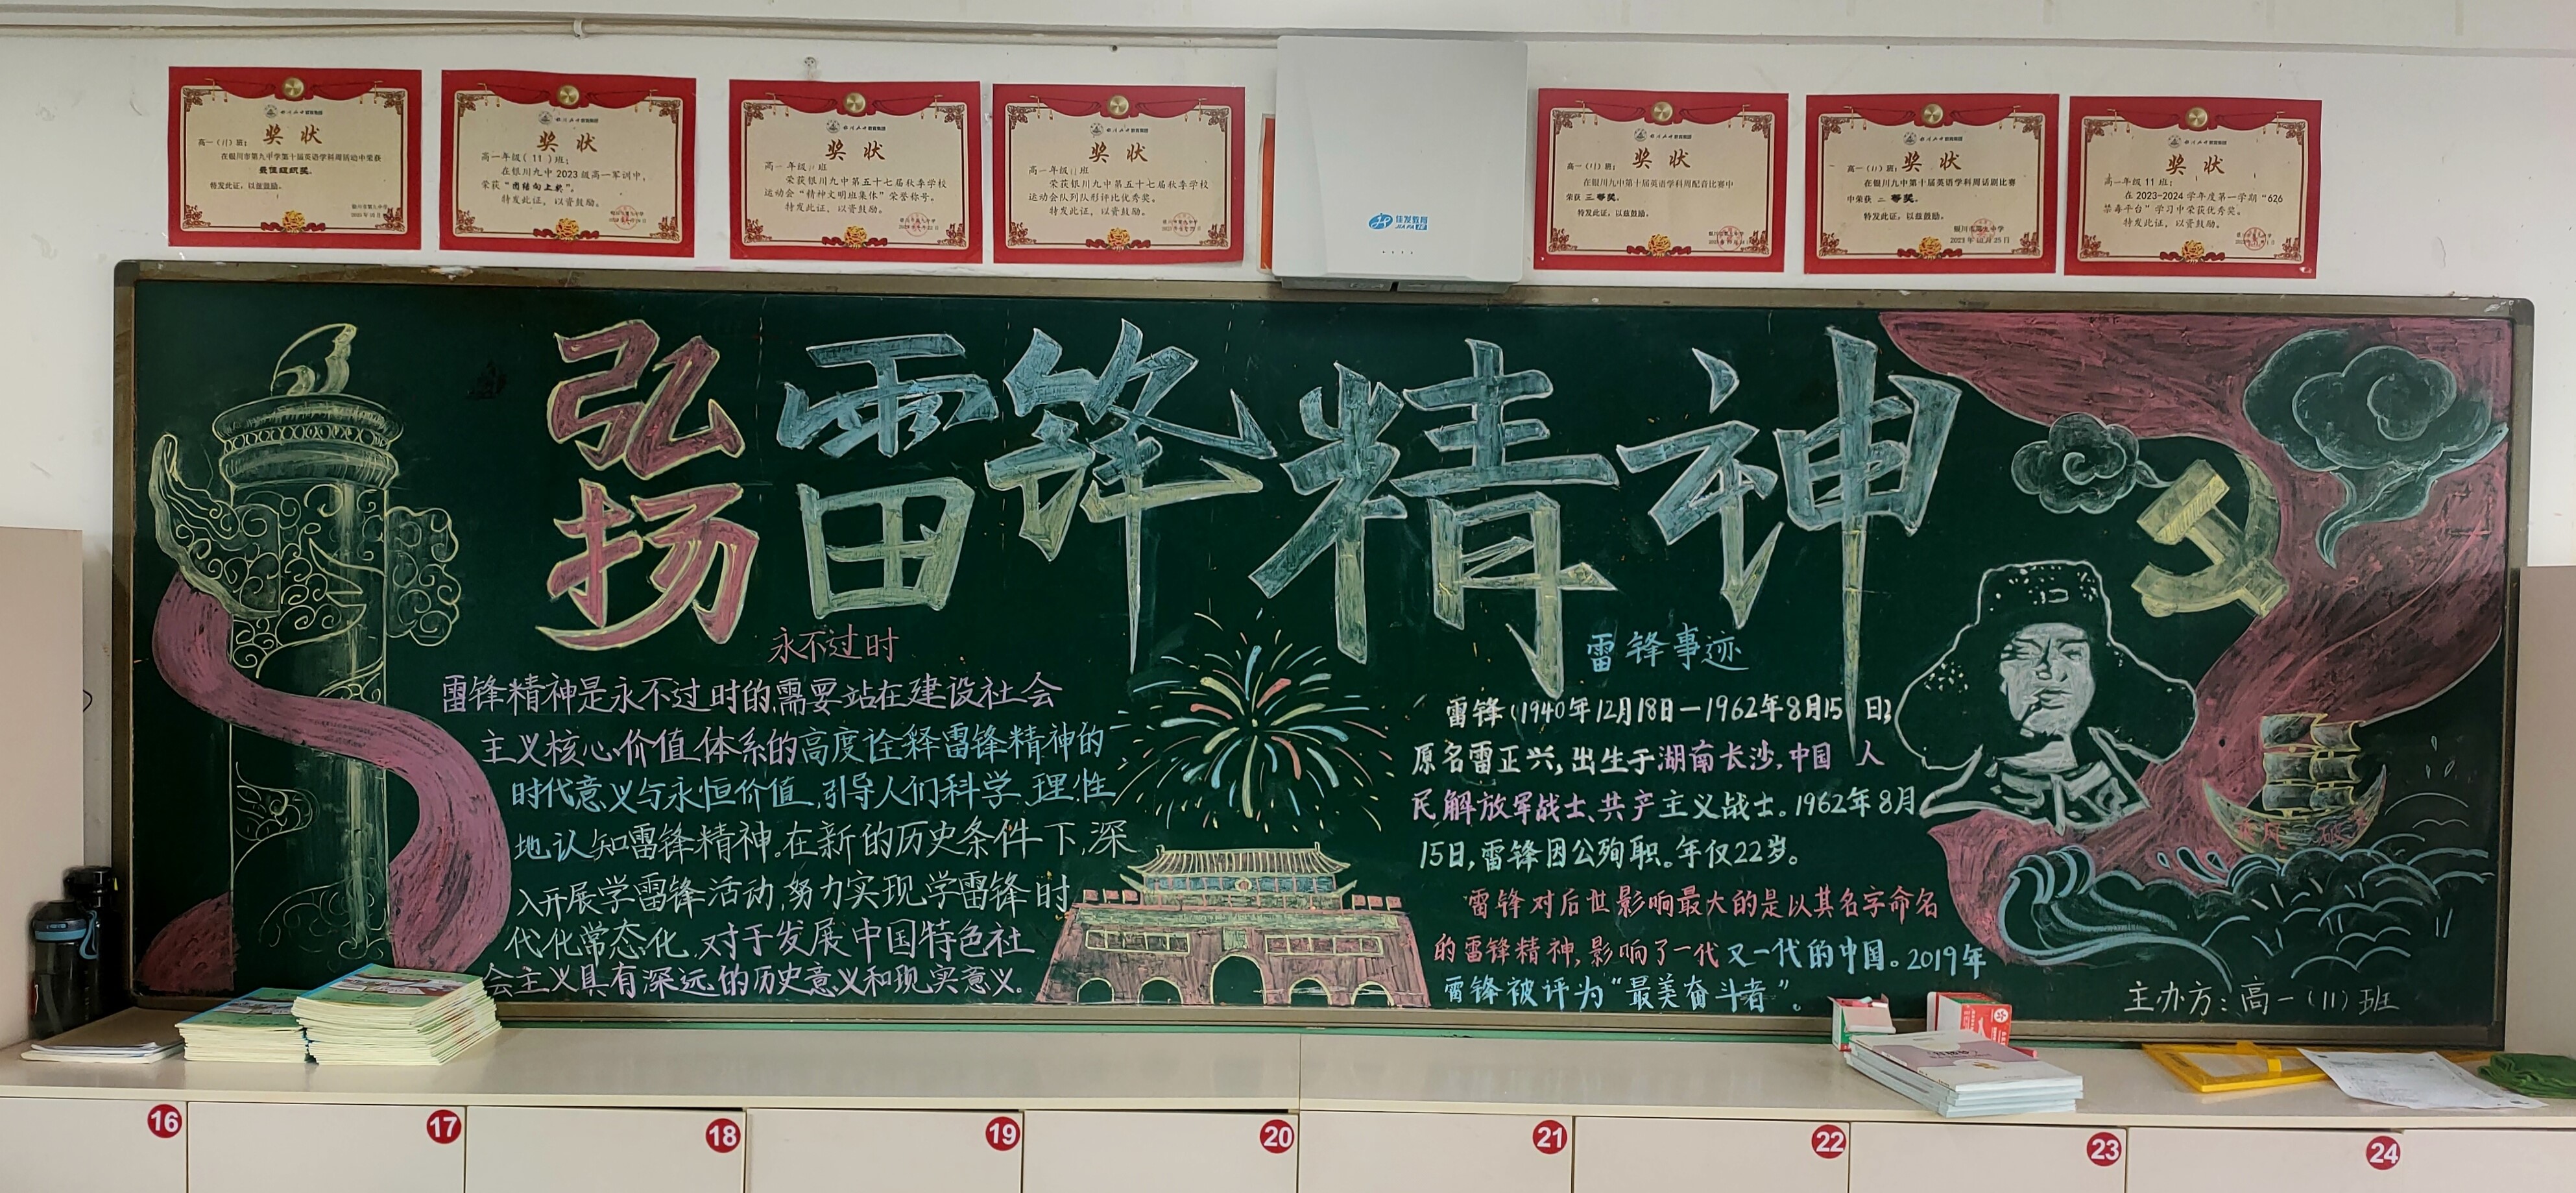 银川九中教育集团
奖状
高一（11）班：
在银川市第九中学第十届英语学科周活动中荣获
最佳组织奖。
特发此证，以兹鼓励。
银川九中教育集团
奖状
高一年级（11）班：
在银川九中2023级高一军训中，
荣获“团结向上奖”。
特发此证，以资鼓励。
银川九中教育集团
奖状
高一年级11班
荣获银川九中第五十七届秋季学校
运动会“精神文明班集体”荣誉称号。
特发此证，以资鼓励。
银川九中教育集团
奖状
高一年级11班
荣获银川九中第五十七届秋季学校
运动会队列队形评比优秀奖。
特发此证，以资鼓励。
佳发教育
JIAFA
银川九中教育集团
奖状
高一（11）班：
在银川九中第十届英语学科周配音比赛中
荣获 三等奖。
特发此证，以兹鼓励。
银川九中教育集团
奖状
高一（11）班：
在银川九中第十届英语学科周话剧比赛
中荣获 二等奖。
特发此证，以兹鼓励。
银川市第九中学
银川九中教育集团
奖状
高一年级11班：
在2023-2024学年度第一学期“626
禁毒平台”学习中荣获优秀奖。
特发此证，以资鼓励。
弘扬雷锋精神
永不过时
雷锋精神是永不过时的,需要站在建设社会
主义核心价值体系的高度诠释雷锋精神的
时代意义与永恒价值,引导人们科学、理性
地认知雷锋精神。在新的历史条件下,深
入开展学雷锋活动,努力实现学雷锋时
代化常态化,对于发展中国特色社
会主义具有深远的历史意义和现实意义。
雷锋事迹
雷锋（1940年12月18日—1962年8月15日）
原名雷正兴,出生于湖南长沙,中国人
民解放军战士、共产主义战士。1962年8月
15日,雷锋因公殉职。年仅22岁。
雷锋对后世影响最大的是以其名字命名
的雷锋精神,影响了一代又一代的中国。2019年
雷锋被评为“最美奋斗者”。
主办方：高一（11）班
16
17
18
19
20
21
22
23
24